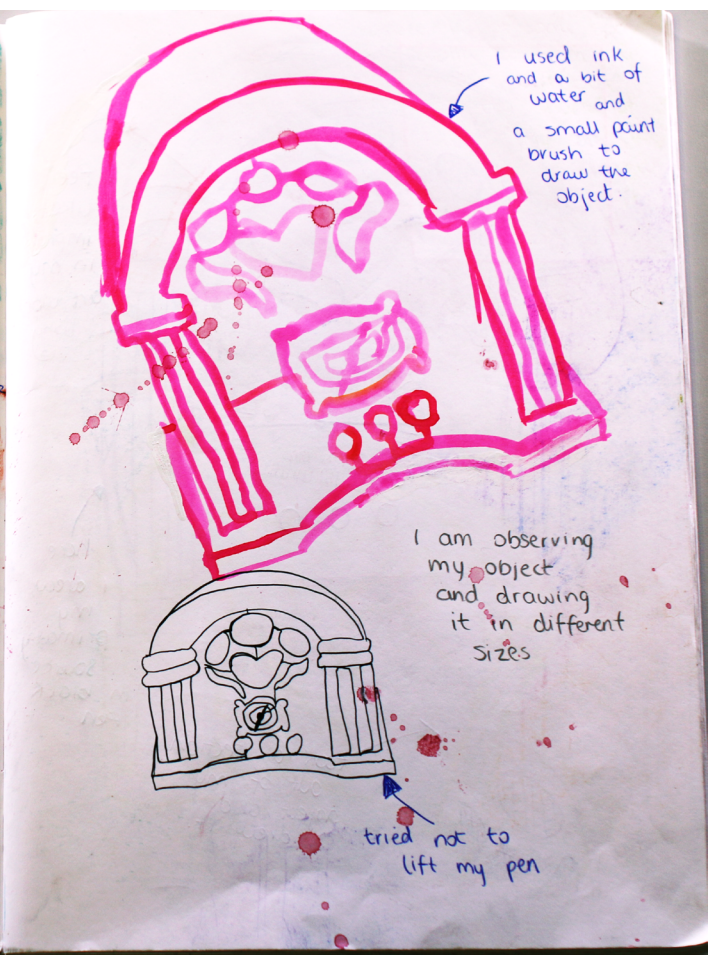 I used ink
and a bit of
water and
a small paint
brush to
draw the
object.
I am observing
my object
and drawing
it in different
sizes
tried not to
lift my pen